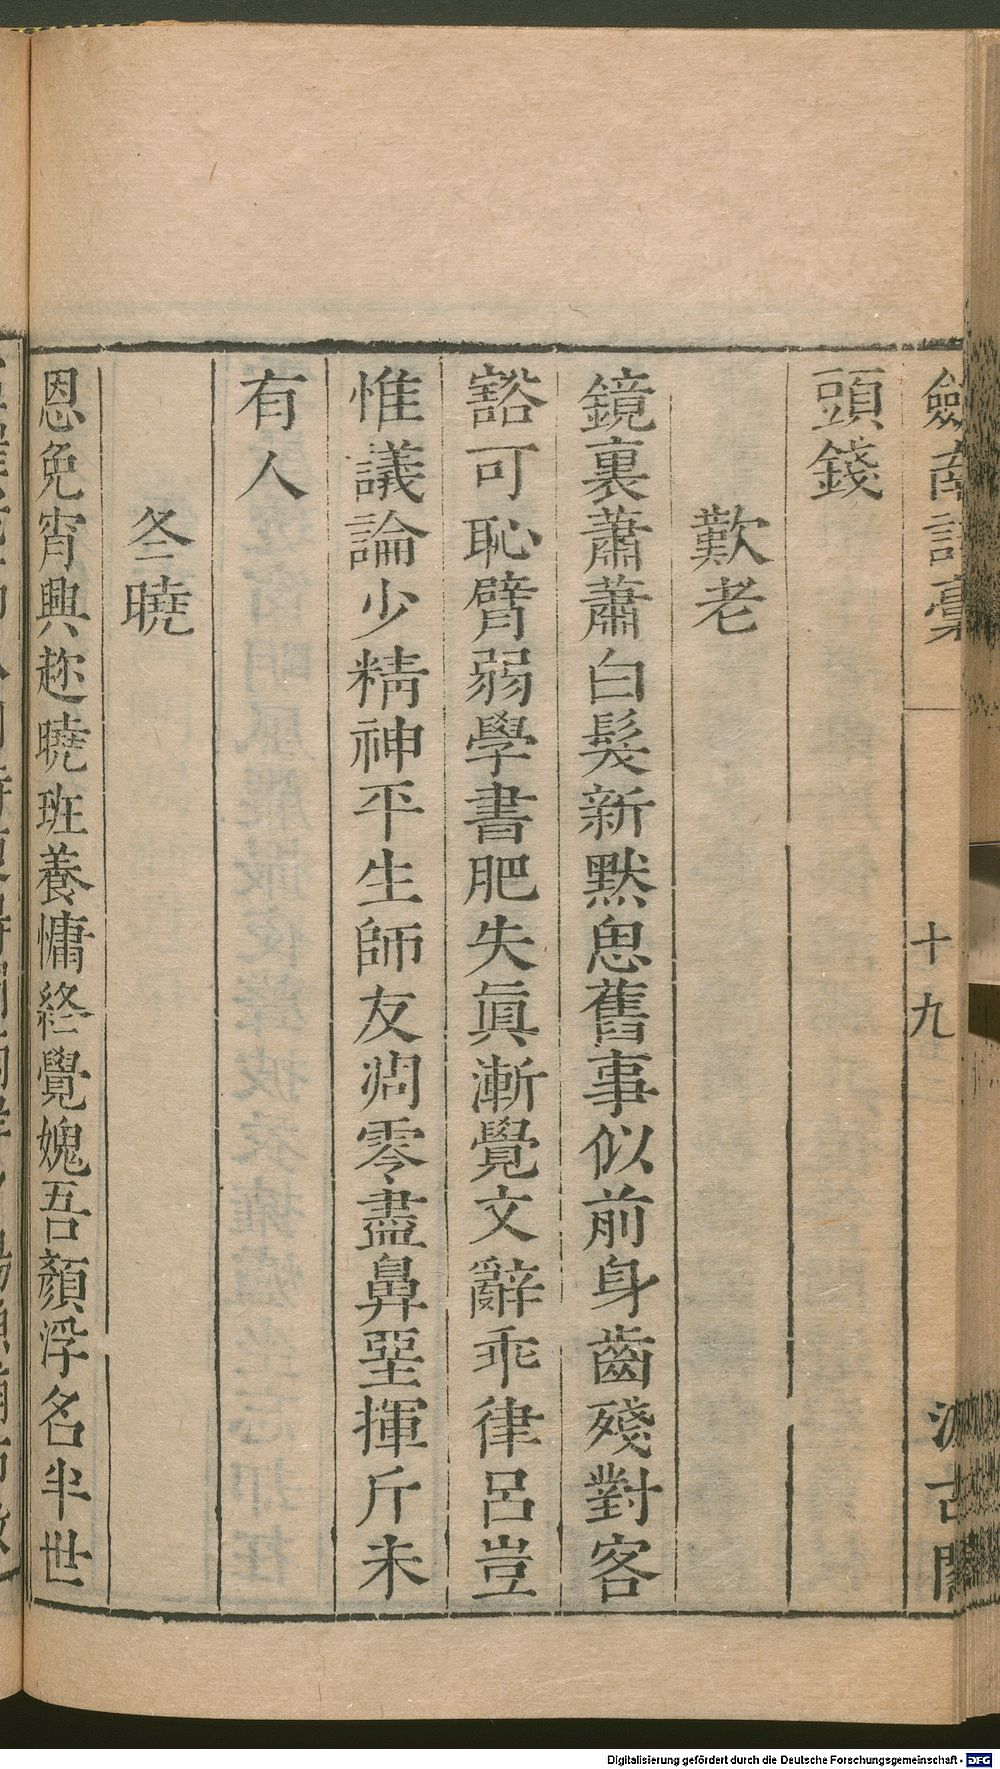 劒南詩藳
十九
汲古閣
頭錢
歎老
鏡裏蕭蕭白髮新默思舊事似前身齒殘對客
豁可恥臂弱學書肥失眞漸覺文辭乖律呂豈
惟議論少精神平生師友凋零盡鼻堊揮斤未
有人
冬曉
恩免宵興趂曉班養慵終覺媿吾顏浮名半世
Digitalisierung gefördert durch die Deutsche Forschungsgemeinschaft - DFG